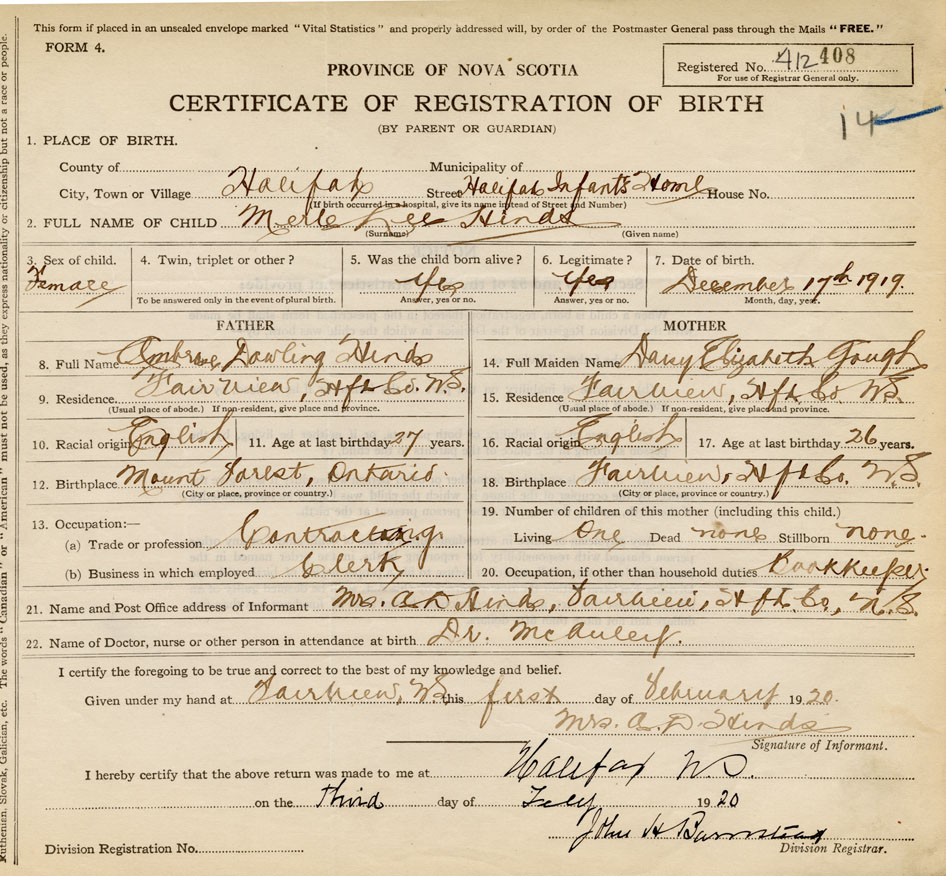 This form if placed in an unsealed envelope marked "Vital Statistics" and properly addressed will, by order of the Postmaster General pass through the Mails "FREE."
FORM 4.
Registered No. 412 408
For use of Registrar General only.
PROVINCE OF NOVA SCOTIA
CERTIFICATE OF REGISTRATION OF BIRTH
14
(BY PARENT OR GUARDIAN)
1. PLACE OF BIRTH.
County of Municipality of
City, Town or Village Halifax Street Halifax Infants Home House No.
(If birth occurred in a hospital, give its name instead of Street and Number)
2. FULL NAME OF CHILD Merle Lee Hinds
(Surname) (Given name)
3. Sex of child. 4. Twin, triplet or other? 5. Was the child born alive? 6. Legitimate? 7. Date of birth.
Female Yes Yes December 17th 1919.
To be answered only in the event of plural birth. Answer, yes or no. Answer, yes or no. Month, day, year.
FATHER MOTHER
8. Full Name Ambrose Dowling Hinds 14. Full Maiden Name Daisy Elizabeth Gough
9. Residence Fairview, Hfx Co. N.S. 15. Residence Fairview, Hfx Co. N.S.
(Usual place of abode.) If non-resident, give place and province. (Usual place of abode.) If non-resident, give place and province.
10. Racial origin English 11. Age at last birthday 27 years. 16. Racial origin English 17. Age at last birthday 26 years.
12. Birthplace Mount Forest, Ontario. 18. Birthplace Fairview, Hfx Co. N.S.
(City or place, province or country.) (City or place, province or country.)
13. Occupation:— 19. Number of children of this mother (including this child.)
(a) Trade or profession Contracting. Living One Dead none Stillborn none.
(b) Business in which employed Clerk 20. Occupation, if other than household duties Bookkeeper.
21. Name and Post Office address of Informant Mrs. A D Hinds, Fairview, Hfx. Co., N.S.
22. Name of Doctor, nurse or other person in attendance at birth Dr. McAuley.
I certify the foregoing to be true and correct to the best of my knowledge and belief.
Given under my hand at Fairview, N.S. this first day of February 1920.
Mrs. A. D. Hinds
Signature of Informant.
I hereby certify that the above return was made to me at Halifax N.S.
on the third day of Feby 1920
John H Barnstead
Division Registrar.
Division Registration No.
Ruthenian, Slovak, Galician, etc. The words "Canadian" or "American" must not be used, as they express nationality or citizenship but not a race or people.